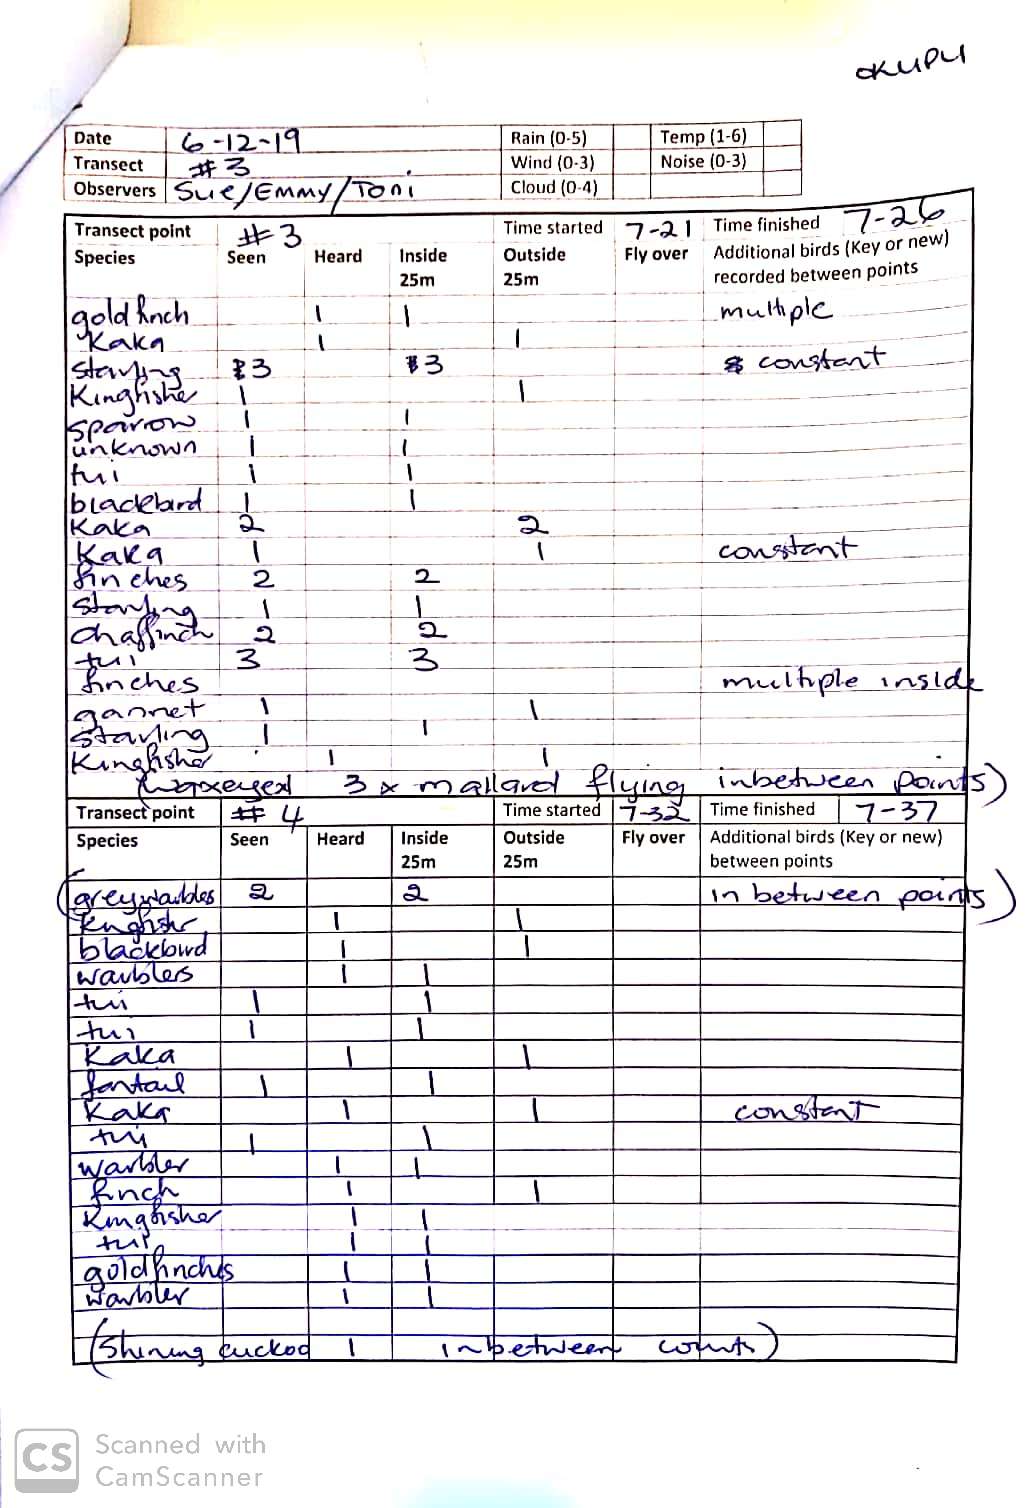 OKUPU
Date 6-12-19 Rain (0-5) Temp (1-6)
Transect #3 Wind (0-3) Noise (0-3)
Observers Sue/Emmy/Toni Cloud (0-4)
Transect point #3 Time started 7-21 Time finished 7-26
Species Seen Heard Inside 25m Outside 25m Fly over Additional birds (Key or new) recorded between points
goldfinch 1 1 multiple
Kaka 1 1
Starling 3 3 constant
Kingfisher 1 1
Sparrow 1 1
unknown 1 1
tui 1 1
blackbird 1 1
Kaka 2 2
Kaka 1 1 constant
finches 2 2
Starling 1 1
Chaffinch 2 2
tui 3 3
finches multiple inside
gannet 1 1
Starling 1 1
Kingfisher 1 1
3 x mallard flying inbetween points)
Transect point # 4 Time started 7-32 Time finished 7-37
Species Seen Heard Inside 25m Outside 25m Fly over Additional birds (Key or new) between points
(greywarbles 2 2 in between points)
kngfishr 1 1
blackbird 1 1
warblers 1 1
tui 1 1
tui 1 1
Kaka 1 1
fantail 1 1
Kaka 1 1 constant
tui 1 1
warbler 1 1
finch 1 1
Kingfisher 1 1
tui 1 1
goldfinches 1 1
warbler 1 1
(Shining cuckoo 1 inbetween counts)
CS Scanned with
CamScanner